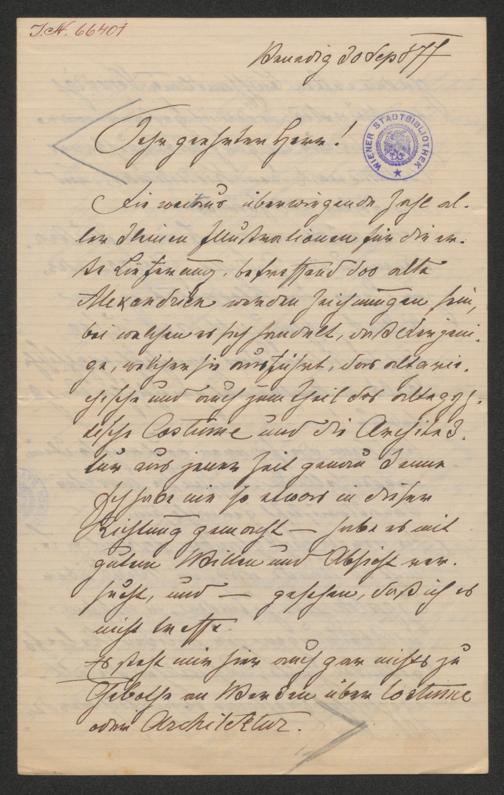 J.N. 66401
Venedig 30 Sept 877
WIENER STADTBIBLIOTHEK
Sehr geehrter Herr!
Die weitaus überwiegende Zahl al-
ler kleinen Illustrationen für die er-
ste Lieferung, betreffend das alte
Alexandrien werden Zeichnungen sein,
bei welchen es sich handelt, daß derjeni-
ge, welcher sie ausführt, das altgrie-
chische und auch zum Theil das altegyp-
tische Costüme und die Architek-
tur aus jener Zeit genau kenne
Ich habe nie so etwas in dieser
Richtung gemacht — habe es mit
gutem Willen und Absicht ver-
sucht, und — gesehen, daß ich es
nicht treffe.
Es steht mir hier auch gar nichts zu
Gebothe an Werken über Costüme
oder Architektur.